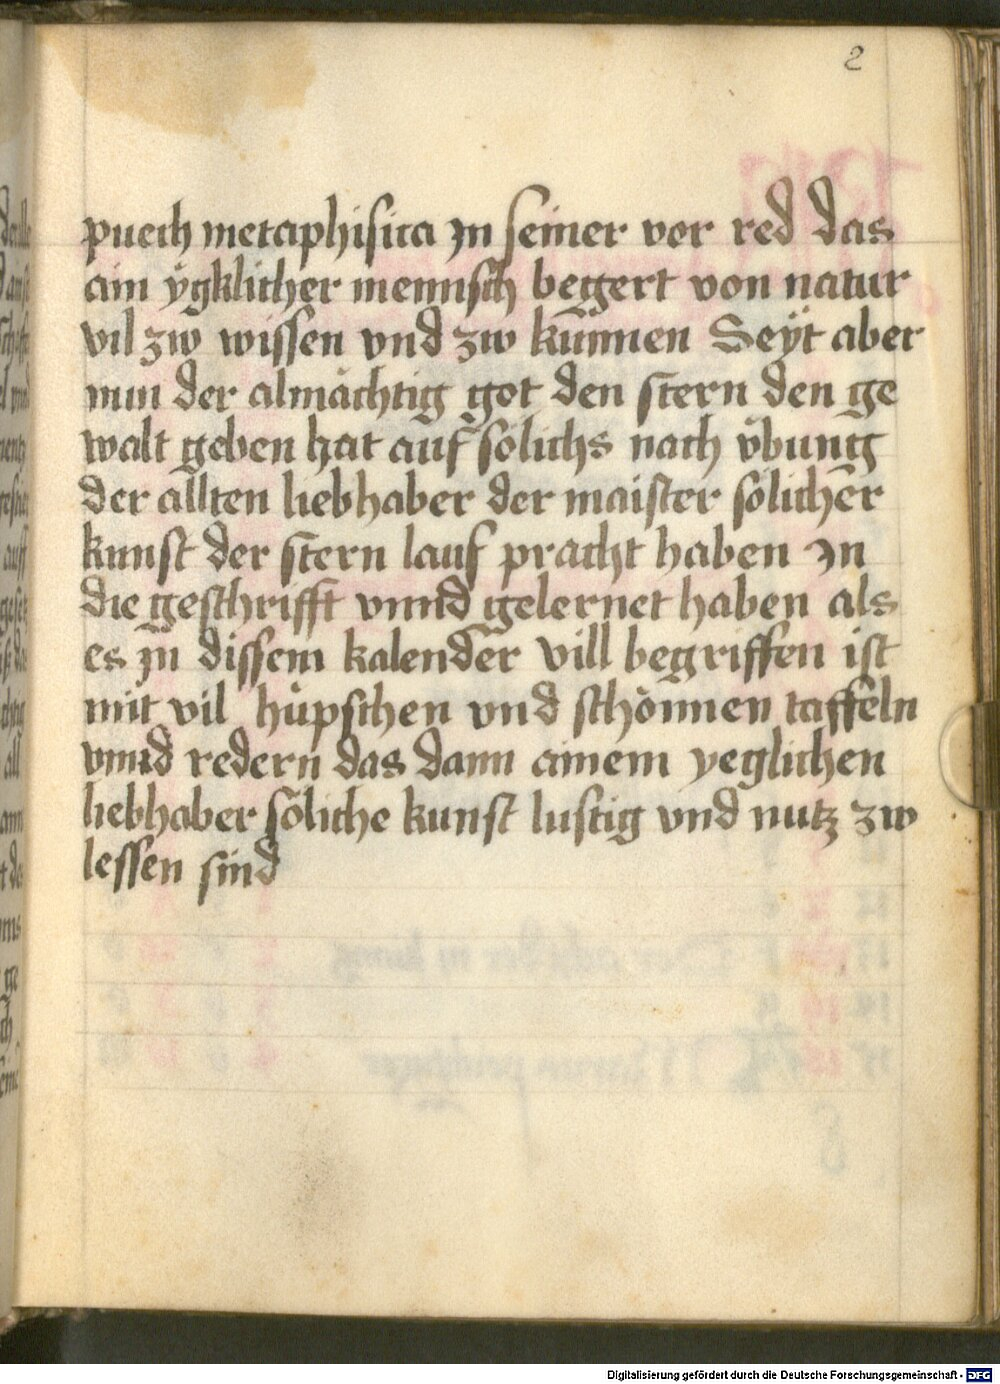 2
puech metaphisica jn seiner vor red das
ain ÿgklicher mennsch begert von natur
vil zw wissen vnd zw künnen Seÿt aber
nun der almächtig got den stern den ge
walt geben hat auf sölichs nach übung
der allten liebhaber der maister sölicher
kunst der stern lauf pracht haben jn
die geschrifft vnnd gelernet haben als
es jn dissem kalender vill begriffen ist
mit vil hüpschen vnd schönnen taffeln
vnnd redern das dann ainem yeglichen
liebhaber söliche kunst lustig vnd nutz zw
lessen sind
Digitalisierung gefördert durch die Deutsche Forschungsgemeinschaft - DFG